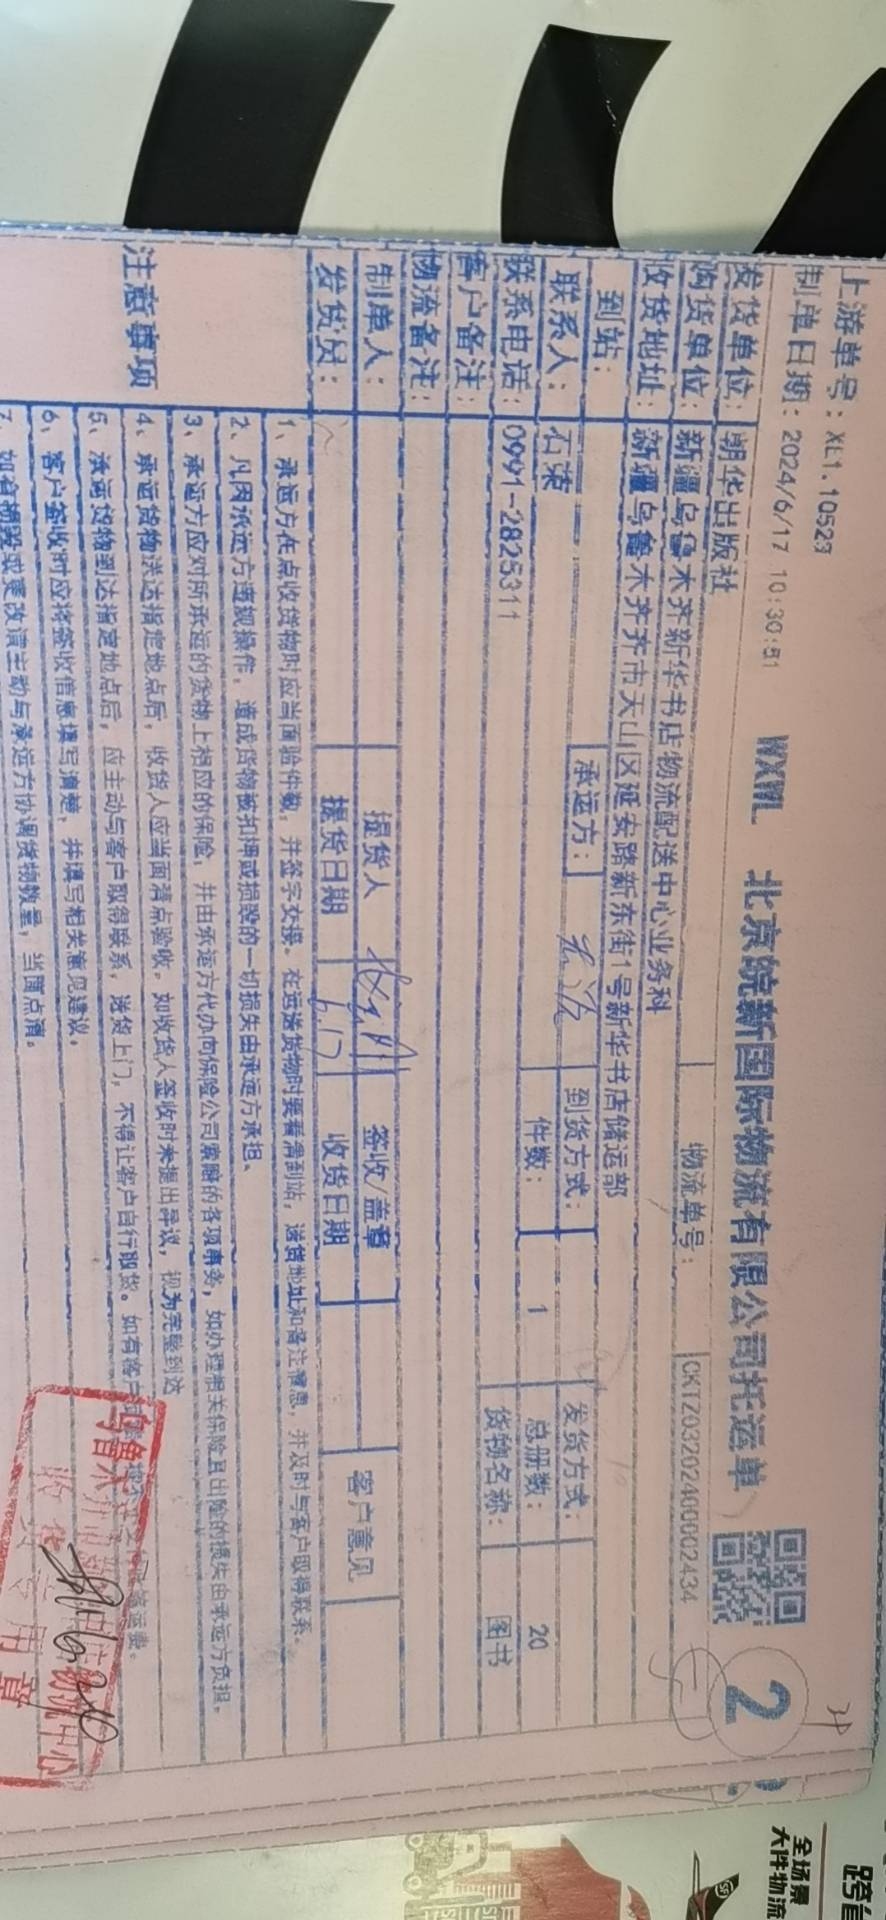 上游单号：XL1.10523
制单日期：2024/6/17 10:30:51
WXWL 北京皖新国际物流有限公司托运单
2
发货单位：朝华出版社
物流单号：CKTZ03202400002434
购货单位：新疆乌鲁木齐新华书店物流配送中心业务科
收货地址：新疆乌鲁木齐齐市天山区延安路新东街1号新华书店储运部
到站： 承运方： 到货方式： 发货方式：
联系人：石荣 件数：1 总册数：20
联系电话：0991-2825311 货物名称：图书
客户备注：
物流备注：
制单人： 提货人 签收/盖章 客户意见
发货员： 提货日期 6.17 收货日期
注意事项
1、承运方在点收货物时应当面验件数，并签字交接。在运送货物时要看清到站，送货地址和备注信息，并及时与客户取得联系。
2、凡因承运方违规操作，造成货物被扣押或损毁的一切损失由承运方承担、
3、承运方应对所承运的货物上相应的保险，并由承运方代办向保险公司索赔的各项事务，如办理相关保险且出险的损失由承运方负担。
4、承运货物送达指定地点后，收货人应当面清点验收。如收货人签收时未提出异议，视为完整到达
5、承运货物到达指定地点后，应主动与客户取得联系，送货上门，不得让客户自行取货。如有客户
等运费。
6、客户签收时应将签收信息填写清楚，并填写相关意见建议。
7、如有损毁或更改请主动与承运方协调货物数量，当面点清。
乌鲁木
物流中心
收货专用章
全场景
大件物流
跨省
SF